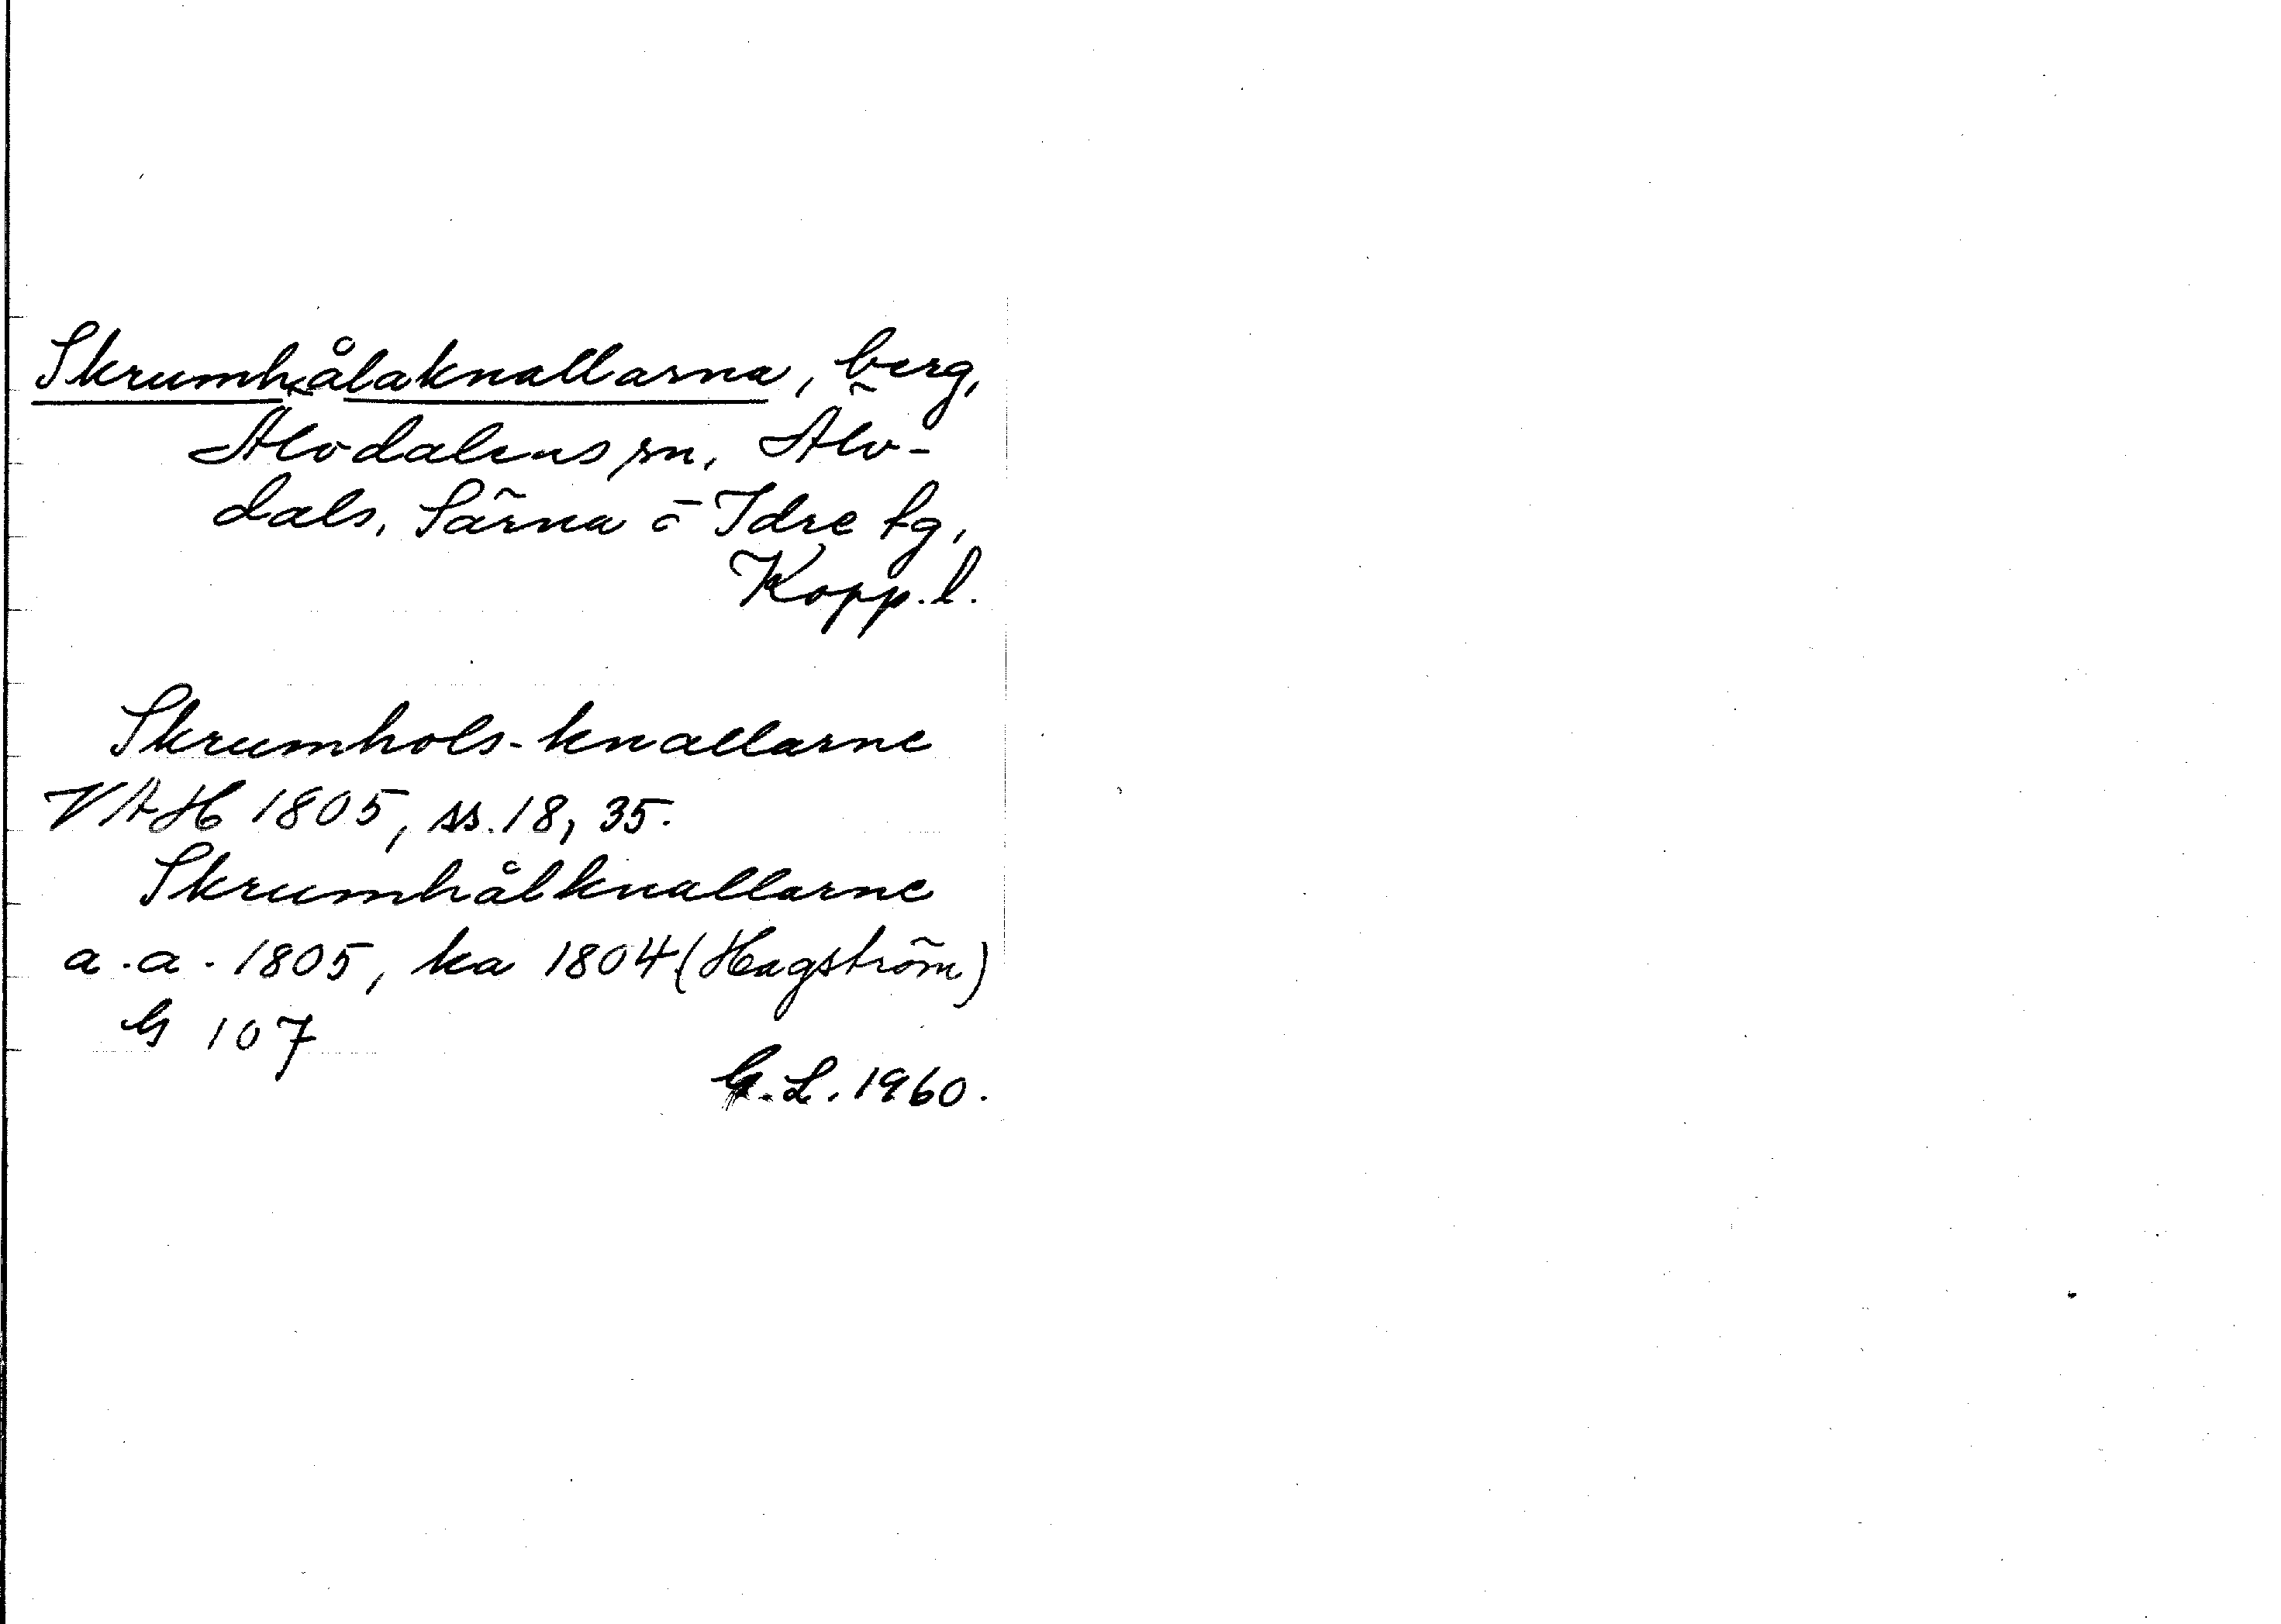 Skrumhålaknallarna, berg,
Älvdalens sn, Älv-
dals, Särna o Idre tg,
Kopp. l.
Skrumhols-knallarne
VAH 1805, ss. 18, 35.
Skrumhålknallarne
a.a. 1805, ka 1804 (Hagström)
G 107
G.L. 1960.